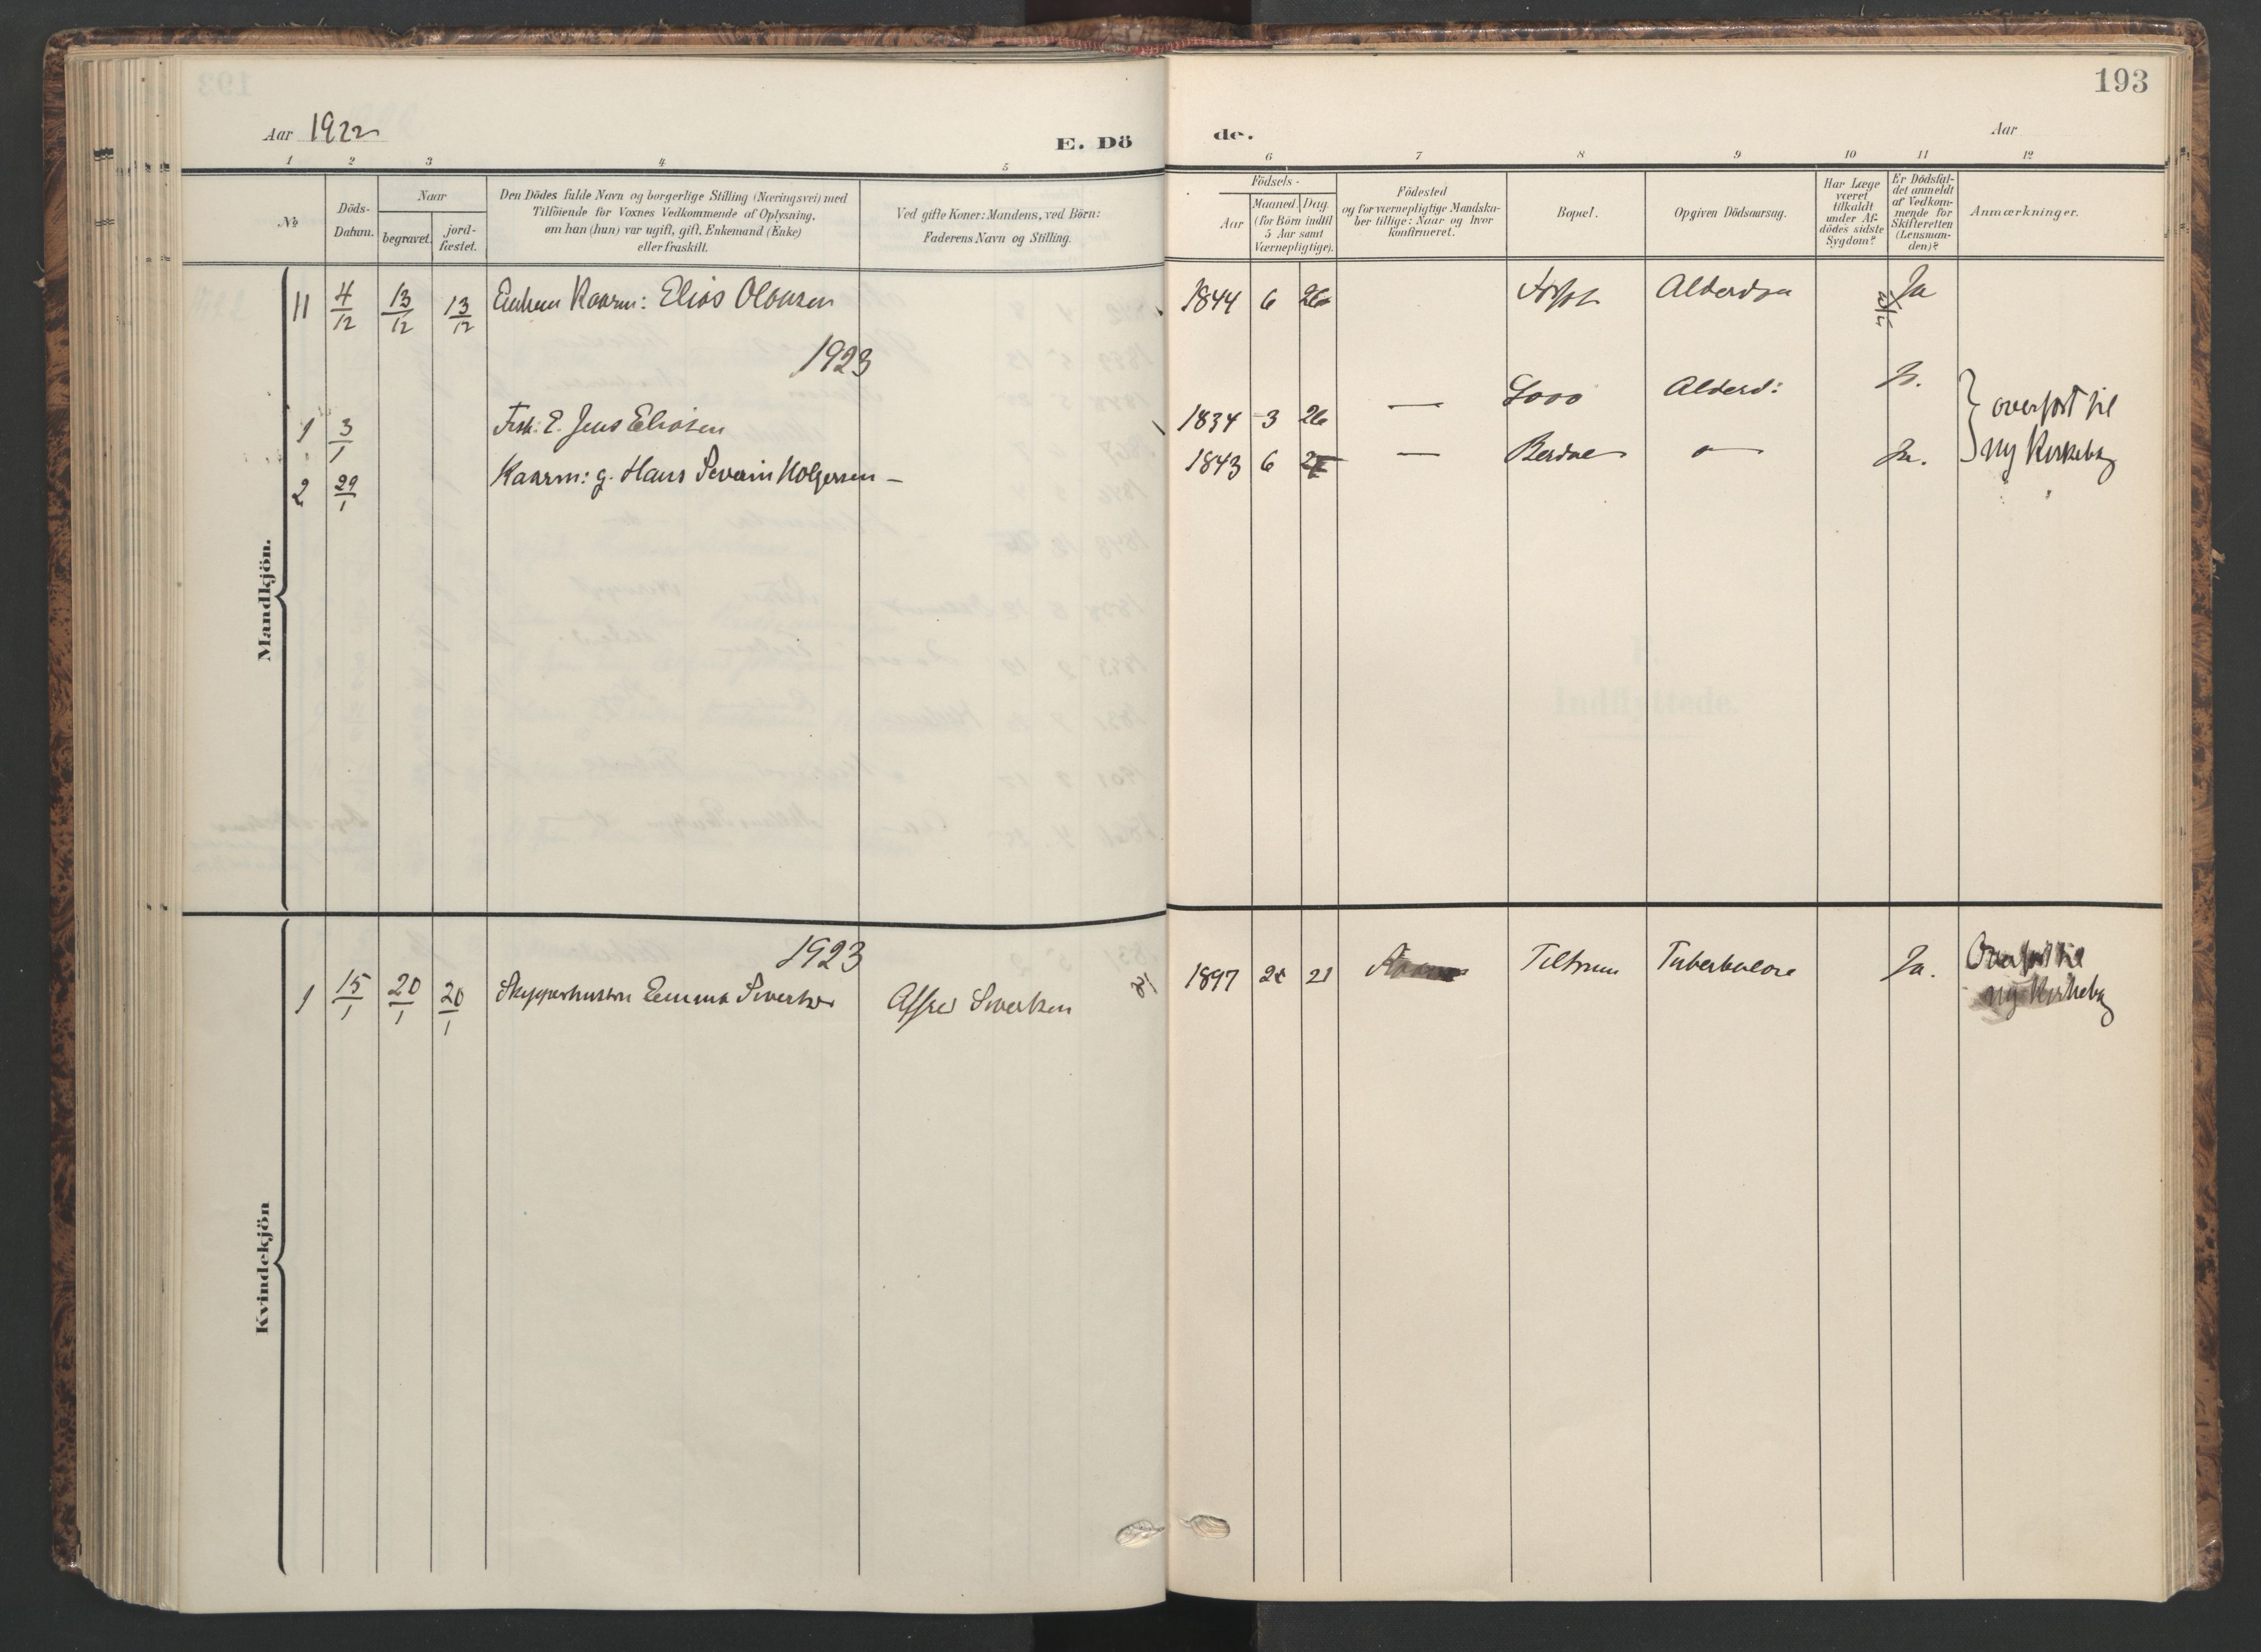 193
Aar 1922
E. Dö
de.
Aar
1 2 3 4 5 6 7 8 9 10 11 12
No
Döds-
Datum.
Naar
begravet.
jord-
fæstet.
Den Dödes fulde Navn og borgerlige Stilling (Næringsvei) med
Tilföiende for Voxnes Vedkommende af Oplysning,
om han (hun) var ugift, gift, Enkemand (Enke)
eller fraskilt.
Ved gifte Koner: Mandens, ved Börn:
Faderens Navn og Stilling.
Födsels-
Aar
Maaned. Dag.
(for Börn indtil
5 Aar samt
Værnepligtige).
Födested
og for værnepligtige Mandska-
ber tillige: Naar og hvor
konfirmeret.
Bopæl.
Opgiven Dödsaarsag.
Har Læge
været
tilkaldt
under Af-
dödes sidste
Sygdom?
Er Dödsfal-
det anmeldt
af Vedkom-
mende for
Skifteretten
(Lensman-
den)?
Anmærkninger.
Mandkjön.
11 4/12 13/12 13/12 Kaarm: Elias Olausen 1844 6 26 Ja
1923
1 3/1 E. Jens Eliasen 1834 3 26 — Alderd: Ja.
2 29/1 Kaarm: g. Hans Severin Holgersen — 1843 6 — Ja.
overført til
ny Kirkebog
Kvindekjön
1923
1 15/1 20/1 20/1 Skipperhustru Emma Sivertsen Alfred Sivertsen 1897 21 Tuberkulose Ja. Overført til
ny Kirkebog